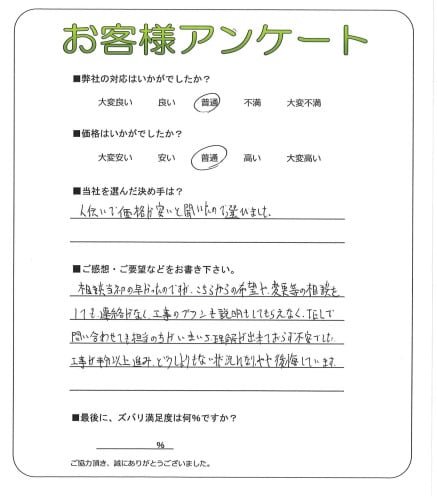 お客様アンケート
■弊社の対応はいかがでしたか？
大変良い 良い 普通 不満 大変不満
■価格はいかがでしたか？
大変安い 安い 普通 高い 大変高い
■当社を選んだ決め手は？
人伝いで価格が安いと聞いたので選びました。
■ご感想・ご要望などをお書き下さい。
相談当初の早かったのですが、こちらからの希望や、変更等の相談を
しても連絡がなく、工事のプランも説明もしてもらえなく、TELで
問い合わせても担当の方がいまいち理解が出来ておらず不安でした。
工事が半分以上進み、どうしようもない状況になりやや後悔しています。
■最後に、ズバリ満足度は何％ですか？
％
ご協力頂き、誠にありがとうございました。